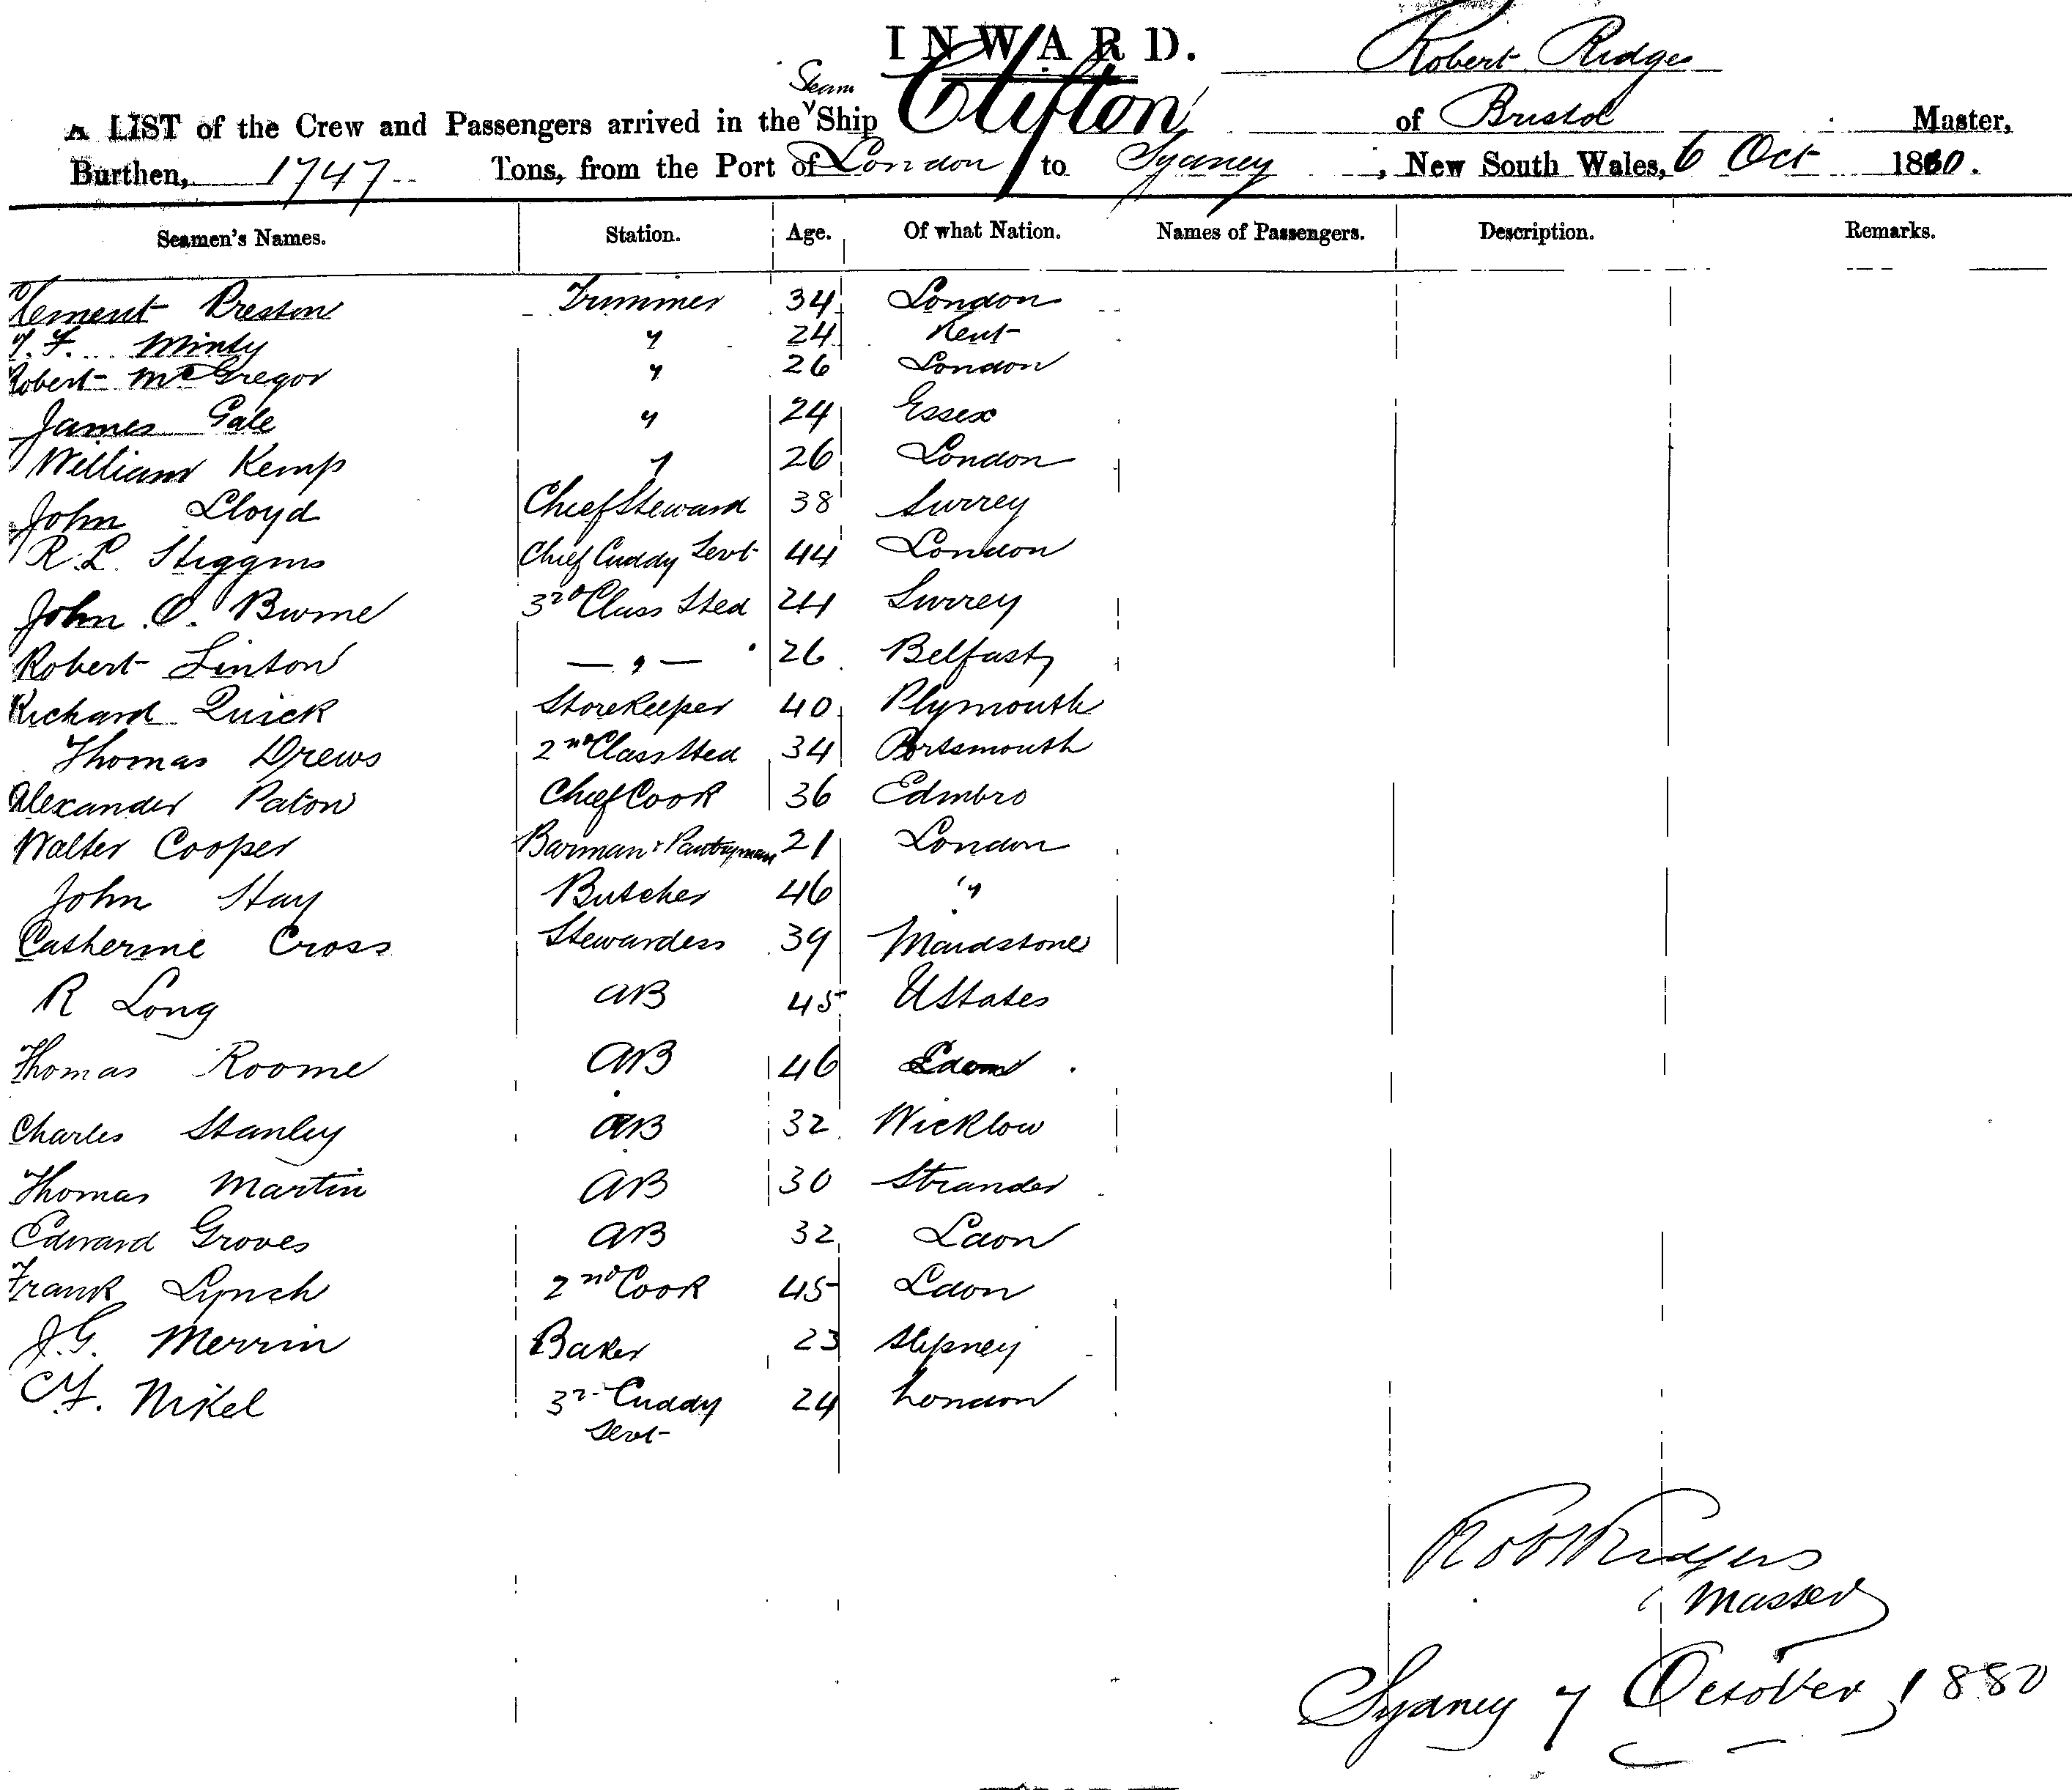 INWARD.
Robert Ridges
Steam
A LIST of the Crew and Passengers arrived in the Ship Clifton of Bristol Master,
Burthen, 1747 Tons, from the Port of London to Sydney, New South Wales, 6 Oct 1880.
Seamen's Names. Station. Age. Of what Nation. Names of Passengers. Description. Remarks.
Clement Preston Trimmer 34 London
F. Minty " 24 Kent
Robert McGregor " 26 London
James Gale " 24 Essex
William Kemp " 26 London
John Lloyd Chief Steward 38 Surrey
R.L. Stiggins Chief Cuddy Servt 44 London
John O. Burne 3rd Class Sted 24 Surrey
Robert Linton — " — 26 Belfast
Richard Quick Storekeeper 40 Plymouth
Thomas Drews 2nd Class Sted 34 Portsmouth
Alexander Paton Chief Cook 36 Edinbro
Walter Cooper Barman & Pantryman 21 London
John Hay Butcher 46 "
Catherine Cross Stewardess 39 Maidstone
R Long AB 45 UStates
Thomas Roome AB 46
Charles Stanley AB 32 Wicklow
Thomas Martin AB 30 Strander
Edward Groves AB 32 Ldon
Frank Lynch 2nd Cook 45 Ldon
J.G. Merrin Baker 23 Stepney
Nikel 3rd Cuddy 24 London
Servt
Robt Ridgers
Master
Sydney 7 October, 1880